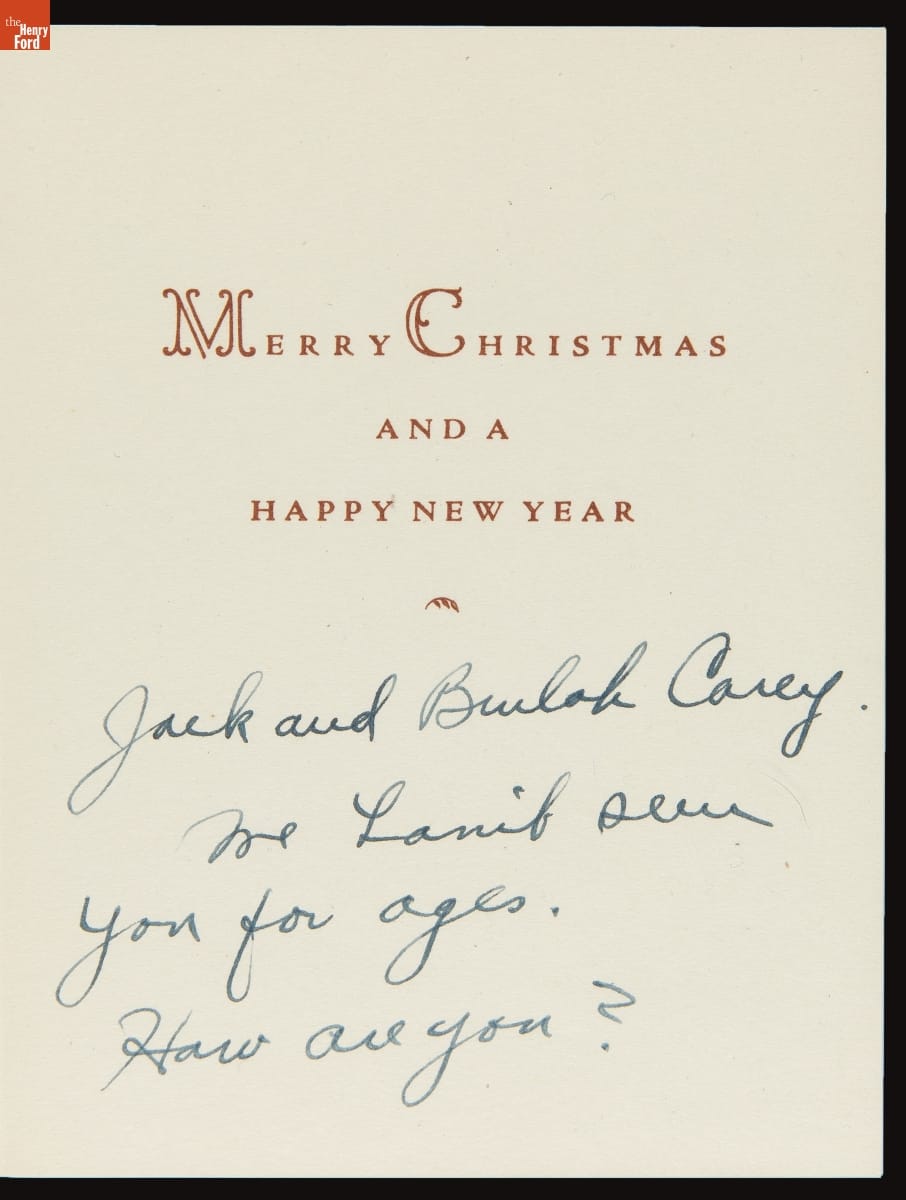 the
Henry
Ford
MERRY CHRISTMAS
AND A
HAPPY NEW YEAR
Jack and Beulah Carey.
We havn't seen
you for ages.
How are you?